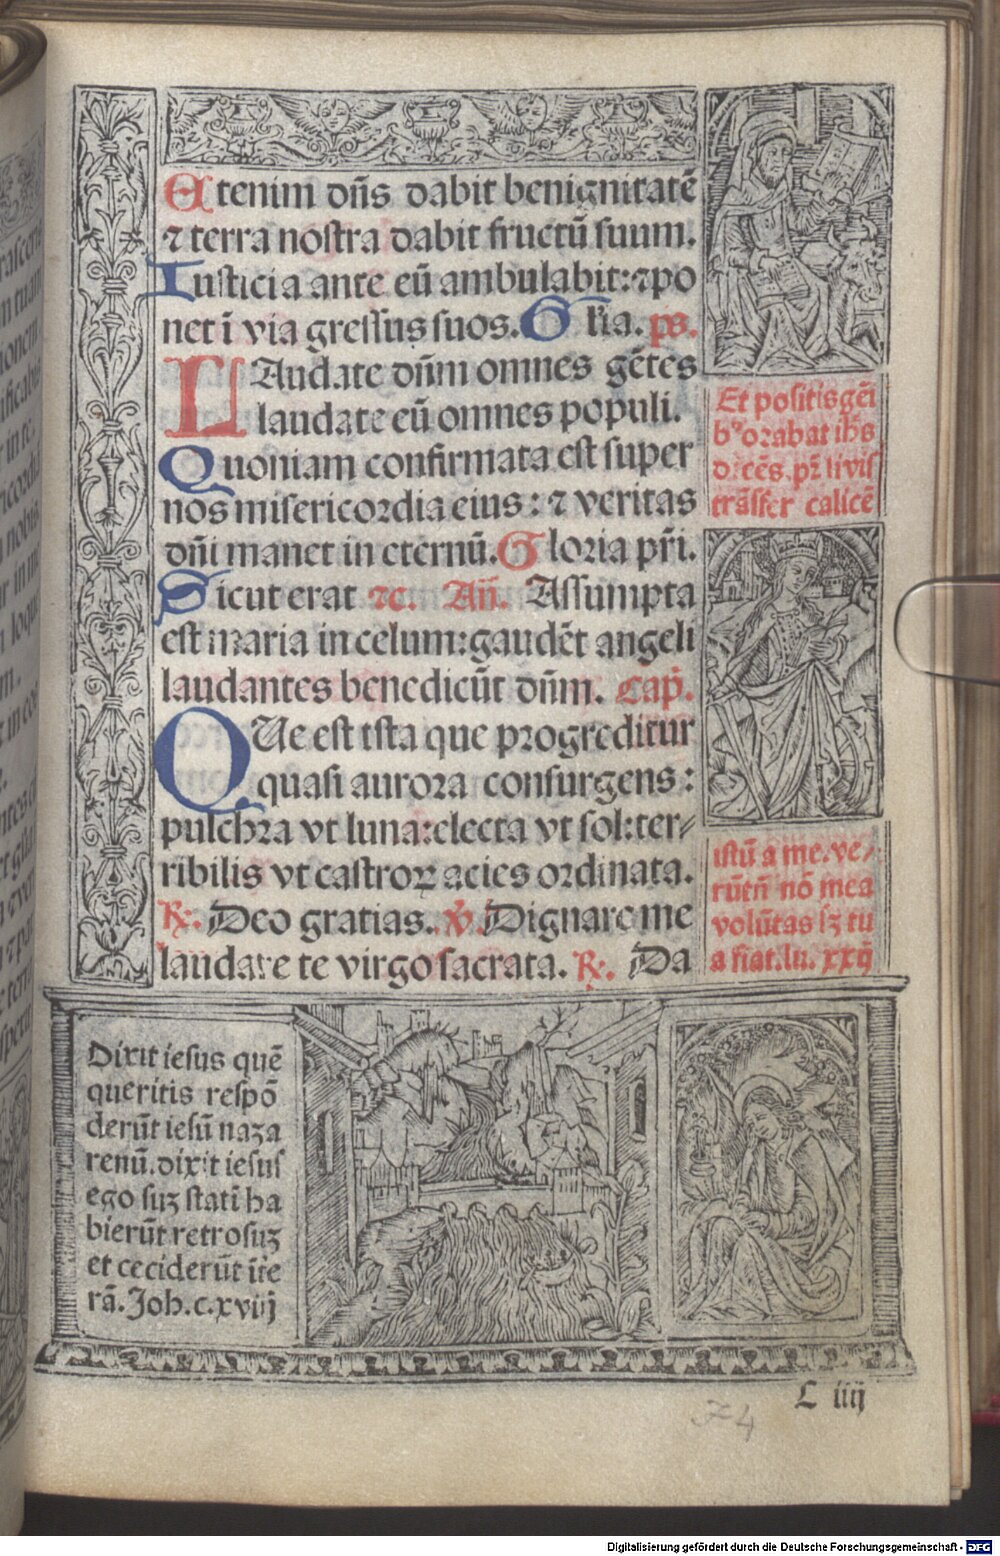 Etenim dñs dabit benignitatē
⁊ terra nostra dabit fructū suum.
Iusticia ante eū ambulabit: ⁊ po
net ī via gressus suos. Gl'ia. ps.
LAudate dñm omnes gētes
laudate eū omnes populi.
Quoniam confirmata est super
nos misericordia eius: ⁊ veritas
dñi manet in eternū. Gloria pr̄i.
Sicut erat ⁊c. Añ. Assumpta
est maria in celum: gaudēt angeli
laudantes benedicūt dñm. Cap̄.
QUe est ista que progreditur
quasi aurora consurgens:
pulchra vt luna: electa vt sol: ter/
ribilis vt castroꝝ acies ordinata.
℟. Deo gratias. ℣. Dignare me
laudare te virgo sacrata. ℟. Da
Et positis gēi
bꝰ orabat ihs
dicēs. pr̄ si vis
trāsfer calicē
istū a me. ve/
rūtñ nō mea
volūtas sꝫ tu
a fiat. lu. xxij
Dixit iesus quē
queritis respō
derūt iesū naza
renū. dixit iesus
ego suꝫ statī ha
bierūt retrosuꝫ
et ceciderūt ī te
rā. Joh. c. xviij
L iiij
74
Digitalisierung gefördert durch die Deutsche Forschungsgemeinschaft - DFG